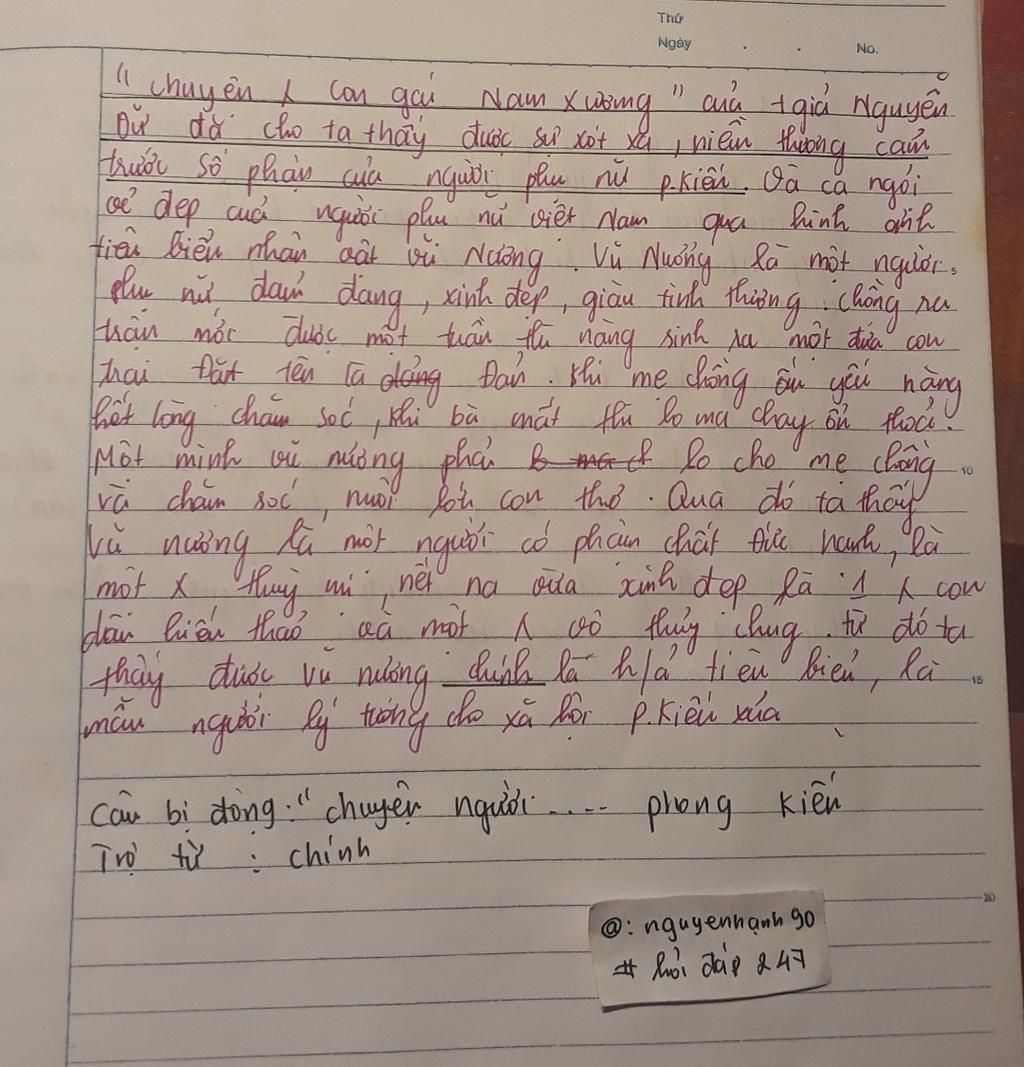 Thứ
Ngày . . No.
"chuyện λ con gái Nam Xương" của tgiả Nguyễn
Dữ đã cho ta thấy được sự xót xa, niềm thương cảm
trước số phận của người phụ nữ p.kiến. Và ca ngợi
vẻ đẹp của người phụ nữ việt Nam qua hình ảnh
tiêu biểu nhân vật vũ Nương. Vũ Nương là một người
phụ nữ đảm đang, xinh đẹp, giàu tình thương. chồng ra
trận mới được một tuần thì nàng sinh ra một đứa con
trai Đặt tên là Đản. khi mẹ chồng ốm yếu nàng
hết lòng chăm sóc, khi bà mất thì lo ma chay ổn thoả.
Một mình vũ nương phải lo cho mẹ chồng 10
và chăm sóc, nuôi lớn con thơ. Qua đó ta thấy
Vũ nương là một người có phẩm chất đức hạnh, là
một λ thuỳ mị, nết na vừa xinh đẹp là 1 λ con
dâu hiếu thảo và một λ vợ thủy chug. từ đó ta
thấy được vũ nương chính là h/ả tiêu biểu, là 15
mẫu người lý tưởng cho xã hội p.kiến xưa
Câu bị động: "chuyện người .... phong kiến
Trợ từ : chính
20
@: nguyenhạnh90
# hỏi đáp 247